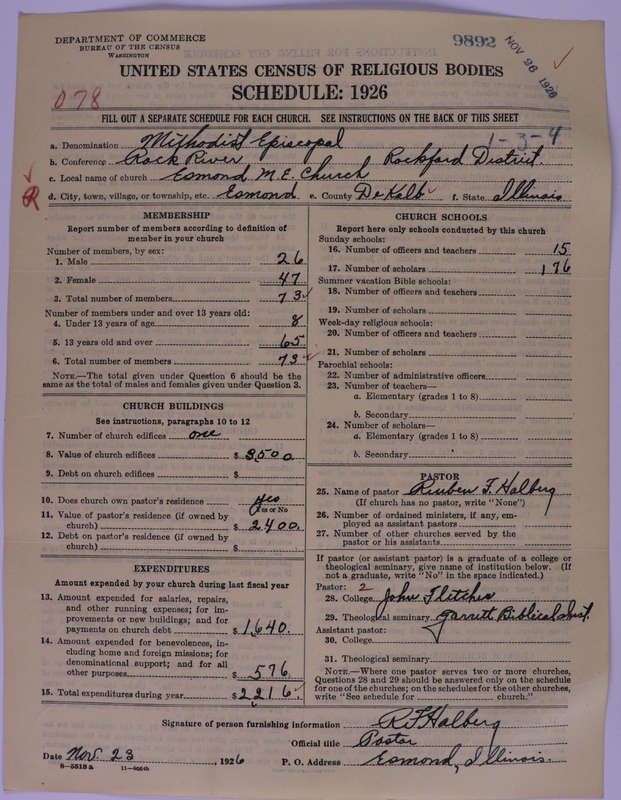 DEPARTMENT OF COMMERCE
BUREAU OF THE CENSUS
WASHINGTON
9892
NOV 26 1926
UNITED STATES CENSUS OF RELIGIOUS BODIES
SCHEDULE: 1926
078
FILL OUT A SEPARATE SCHEDULE FOR EACH CHURCH. SEE INSTRUCTIONS ON THE BACK OF THIS SHEET
1-3-4
a. Denomination Methodist Episcopal
b. Conference Rock River Rockford District
c. Local name of church Esmond M.E. Church
R
d. City, town, village, or township, etc. Esmond e. County DeKalb f. State Illinois
MEMBERSHIP
Report number of members according to definition of
member in your church
Number of members, by sex:
1. Male 26
2. Female 47
3. Total number of members 73
Number of members under and over 13 years old:
4. Under 13 years of age 8
5. 13 years old and over 65
6. Total number of members 73
NOTE.—The total given under Question 6 should be the
same as the total of males and females given under Question 3.
CHURCH BUILDINGS
See instructions, paragraphs 10 to 12
7. Number of church edifices one
8. Value of church edifices $ 3,500.
9. Debt on church edifices $
10. Does church own pastor's residence Yes
(Yes or No
11. Value of pastor's residence (if owned by
church) $ 2400.
12. Debt on pastor's residence (if owned by
church) $
EXPENDITURES
Amount expended by your church during last fiscal year
13. Amount expended for salaries, repairs,
and other running expenses; for im-
provements or new buildings; and for
payments on church debt $ 1,640.
14. Amount expended for benevolences, in-
cluding home and foreign missions; for
denominational support; and for all
other purposes $ 576
15. Total expenditures during year $ 2216
CHURCH SCHOOLS
Report here only schools conducted by this church
Sunday schools:
16. Number of officers and teachers 15
17. Number of scholars 176
Summer vacation Bible schools:
18. Number of officers and teachers
19. Number of scholars
Week-day religious schools:
20. Number of officers and teachers
21. Number of scholars
Parochial schools:
22. Number of administrative officers
23. Number of teachers—
a. Elementary (grades 1 to 8)
b. Secondary
24. Number of scholars—
a. Elementary (grades 1 to 8)
b. Secondary
PASTOR
25. Name of pastor Reuben F. Halberg
(If church has no pastor, write "None")
26. Number of ordained ministers, if any, em-
ployed as assistant pastors
27. Number of other churches served by the
pastor or his assistants
If pastor (or assistant pastor) is a graduate of a college or
theological seminary, give name of institution below. (If
not a graduate, write "No" in the space indicated.)
Pastor: 2
28. College John Fletcher
29. Theological seminary Garrett Biblical Inst.
Assistant pastor:
30. College
31. Theological seminary
NOTE.—Where one pastor serves two or more churches,
Questions 28 and 29 should be answered only on the schedule
for one of the churches; on the schedules for the other churches,
write "See schedule for church."
Signature of person furnishing information R F Halberg
Official title Pastor
Date Nov. 23, 1926 P. O. Address Esmond, Illinois.
8—5518a